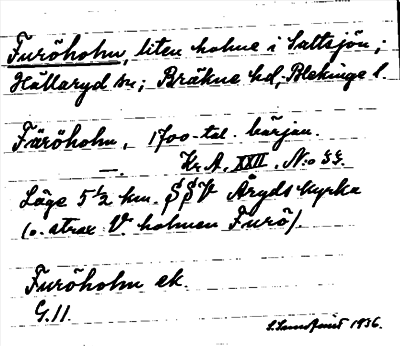 Furöholm, liten holme i Saltsjön;
Hällaryd sn; Bräkne hd, Blekinge l.
Färöholm, 1700-tal. början.
—. Kr.A. XXII. N:o 33.
Läge 5 1/2 km. SSV Åryds kyrka
(o. strax V. holmen Furö).
Furöholm ek.
G.11.
1936.